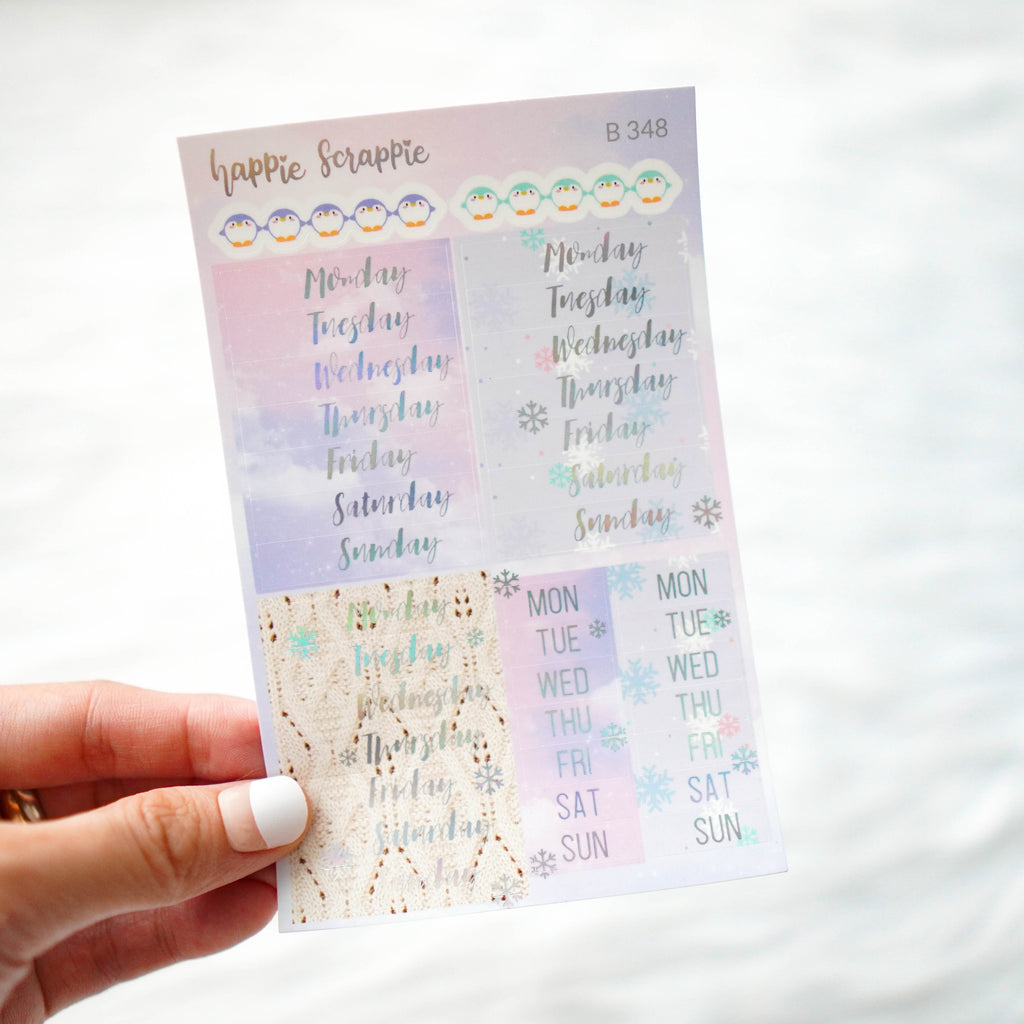 happie scrappie
B 348
Monday
Tuesday
Wednesday
Thursday
Friday
Saturday
Sunday
Monday
Tuesday
Wednesday
Thursday
Friday
Saturday
Sunday
Monday
Tuesday
Wednesday
Thursday
Friday
Saturday
MON
TUE
WED
THU
FRI
SAT
SUN
MON
TUE
WED
THU
FRI
SAT
SUN